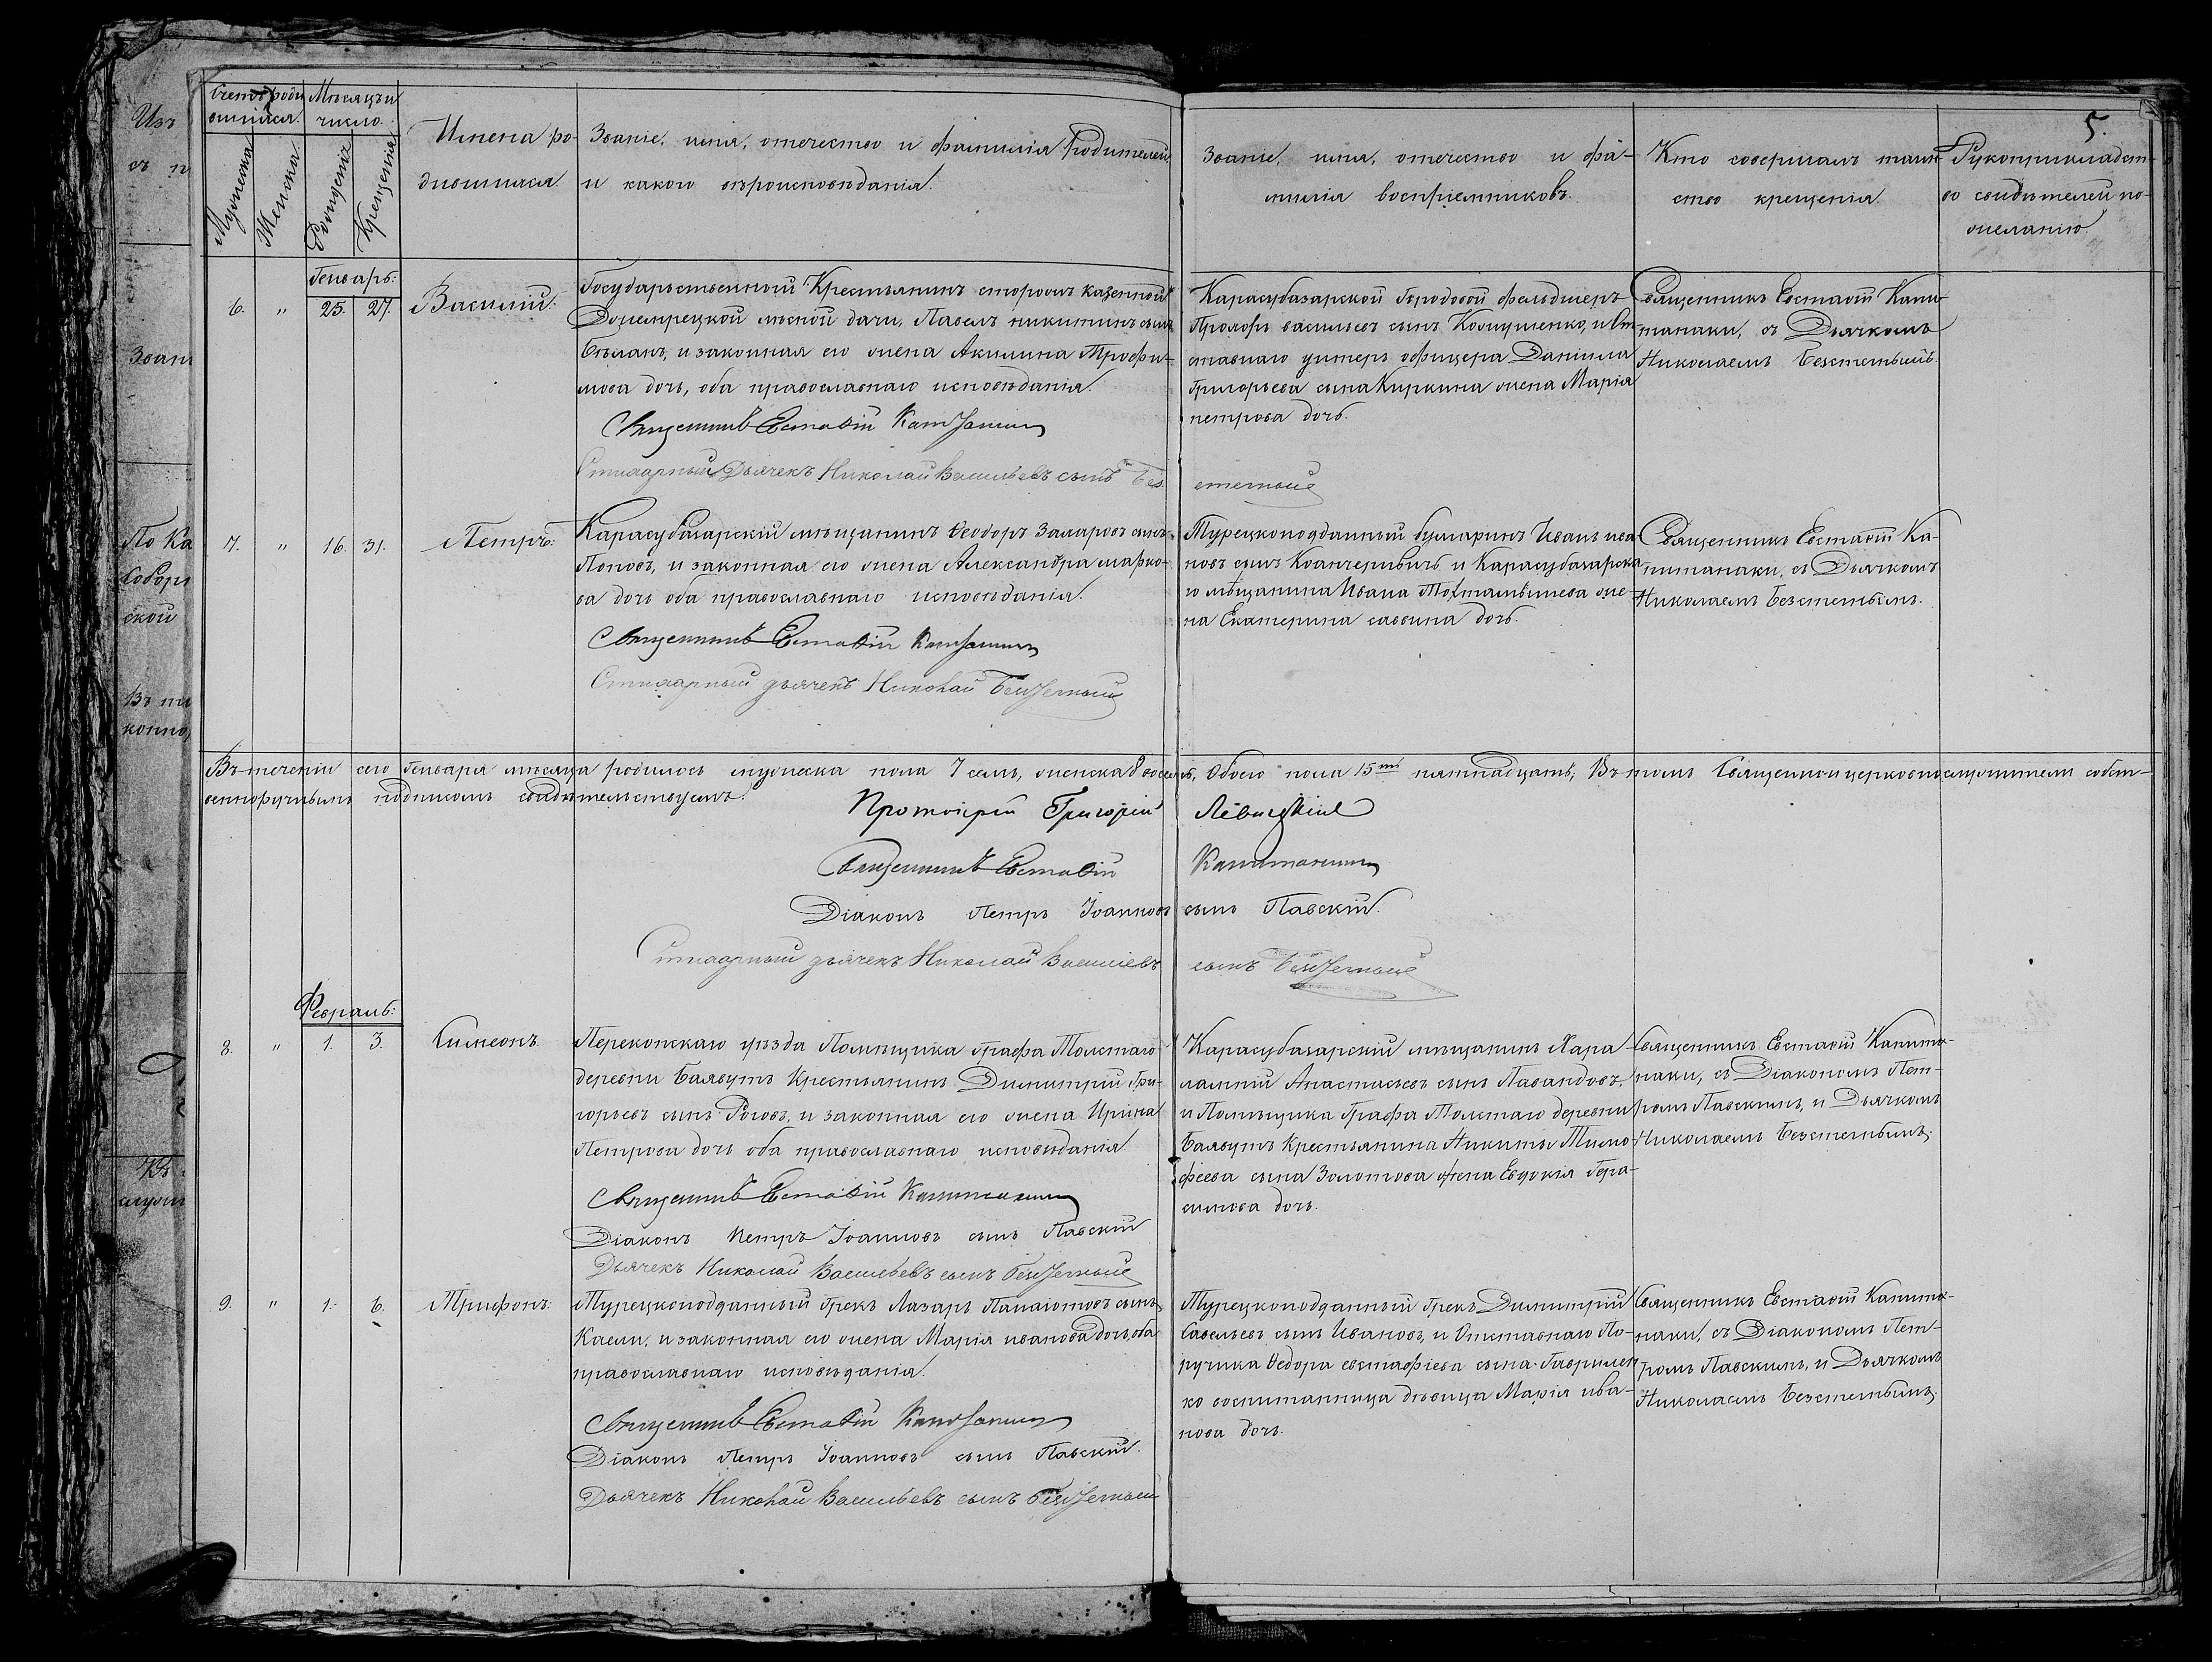 5.
Счетъ роди
вшихся.
Мѣсяцъ и
число.
Мужеска
Женска.
Рожденія
Крещенія
Имена ро-
дившихся.
Званіе, имя, отечество и фамилія Родителей,
и какого вѣроисповѣданія.
Званіе, имя, отечество и фа-
милія воспріемниковъ.
Кто совершалъ таин-
ство крещенія.
Рукоприкладст-
во свидѣтелей по
желанію.
Генварь:
6. " 25. 27. Василій:
Государственный Крестьянинъ сторожъ казенной
лѣсной дачи, Павелъ никитинъ сынъ
Бѣланъ, и законная его жена Акилина Трофи-
мова дочь, оба православнаго исповѣданія.
Священникъ Евстафій Капитанаки
Стихарный Дьячекъ Николай Васильевъ сынъ Без-
стетный
Карасубазарской Городовой фельдшеръ
Прокофъ васильевъ сынъ Колтушенко, и От-
ставнаго унтеръ офицера Даніила
Григорьева сына Киркина жена Марія
петрова дочь.
Священникъ Евстафій Капи-
танаки, съ Дьячкомъ
Николаемъ Безстетнымъ.
7. " 16. 31. Петръ:
Карасубазарскій мѣщанинъ Ѳеодоръ Захаровъ сынъ
Поповъ, и законная его жена Александра марко-
ва дочь оба православнаго исповѣданія.
Священникъ Евстафій Капитанаки
Стихарный дьячекъ Николай Безстетный
Турецкоподданный булгаринъ Иванъ ива-
новъ сынъ и Карасубазарска
го мѣщанина Ивана Тохтамышева же-
на Екатерина саввина дочь.
Священникъ Евстафій Ка-
питанаки, съ Дьячкомъ
Николаемъ Безстетнымъ.
Въ теченіи сего Генваря мѣсяца родилось мужеска пола 7 семь, женска 8 восемь, Обоего пола 15ть пятнадцать, Въ томъ Священноицерковнослужители собст-
венноручнымъ подписомъ свидѣтельствуемъ:
Протоіерей Григорій Левицкій
Священникъ Евстафій Капитанаки
Діаконъ Петръ Іоанновъ сынъ Павскій.
Стихарный дьячекъ Николай Васильевъ сынъ Безстетный
Февраль:
8. " 1. 3. Симеонъ.
Перекопскаго уѣзда Помѣщика Графа Толстаго
деревни Баявутъ Крестьянинъ Димитрій Гри-
горьевъ сынъ Роговъ, и законная его жена Ирина
Петрова дочь оба православнаго исповѣданія.
Священникъ Евстафій Капитанаки
Діаконъ Петръ Іоанновъ сынъ Павскій
Дьячекъ Николай Васильевъ сынъ Безстетный
Карасубазарскій мѣщанинъ Хара-
лампій Анастасьевъ сынъ Павандовъ,
и Помѣщика Графа Толстаго деревни
Баявутъ Крестьянина Никиты Тимо-
феева сына Золотова жена Евдокія Гера-
симова дочь.
Священникъ Евстафій Капита-
наки, съ Діакономъ Пет-
ромъ Павскимъ, и Дьячкомъ
Николаемъ Безстетнымъ;
9. " 1. 6. Трифонъ:
Турецкоподданный Грекъ Лазарь Панаіотовъ сынъ
Каели, и законная его жена Марія иванова дочь, оба
православнаго исповѣданія.
Священникъ Евстафій Капитанаки
Діаконъ Петръ Іоанновъ сынъ Павскій.
Дьячекъ Николай Васильевъ сынъ Безстетный
Турецкоподданный Грекъ Димитрій
Савельевъ сынъ Ивановъ, и Отставнаго По-
ручика Ѳедора евстафіева сына Гаврилен
ко воспитанница дѣвица Марія ива-
нова дочь.
Священникъ Евстафій Капита-
наки, съ Діакономъ Пет-
ромъ Павскимъ, и Дьячкомъ
Николаемъ Безстетнымъ;
Изъ
Зван
По Ка
Собор
ской